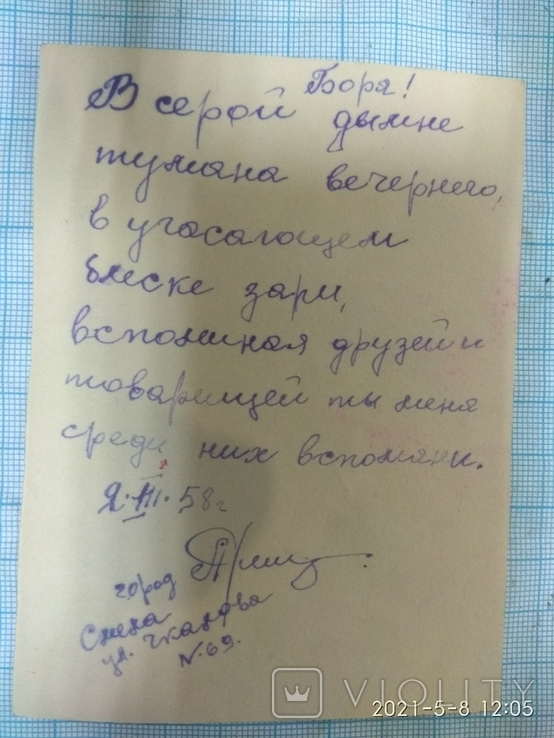 Боря!
В серой дымке
тумана вечернего,
в угасающем
блеске зари,
вспоминая друзей и
товарищей ты меня
среди них вспомяни.
2.III.58г
город
ул. Чкалова
N.69.
VIOLITY
2021-5-8 12:05